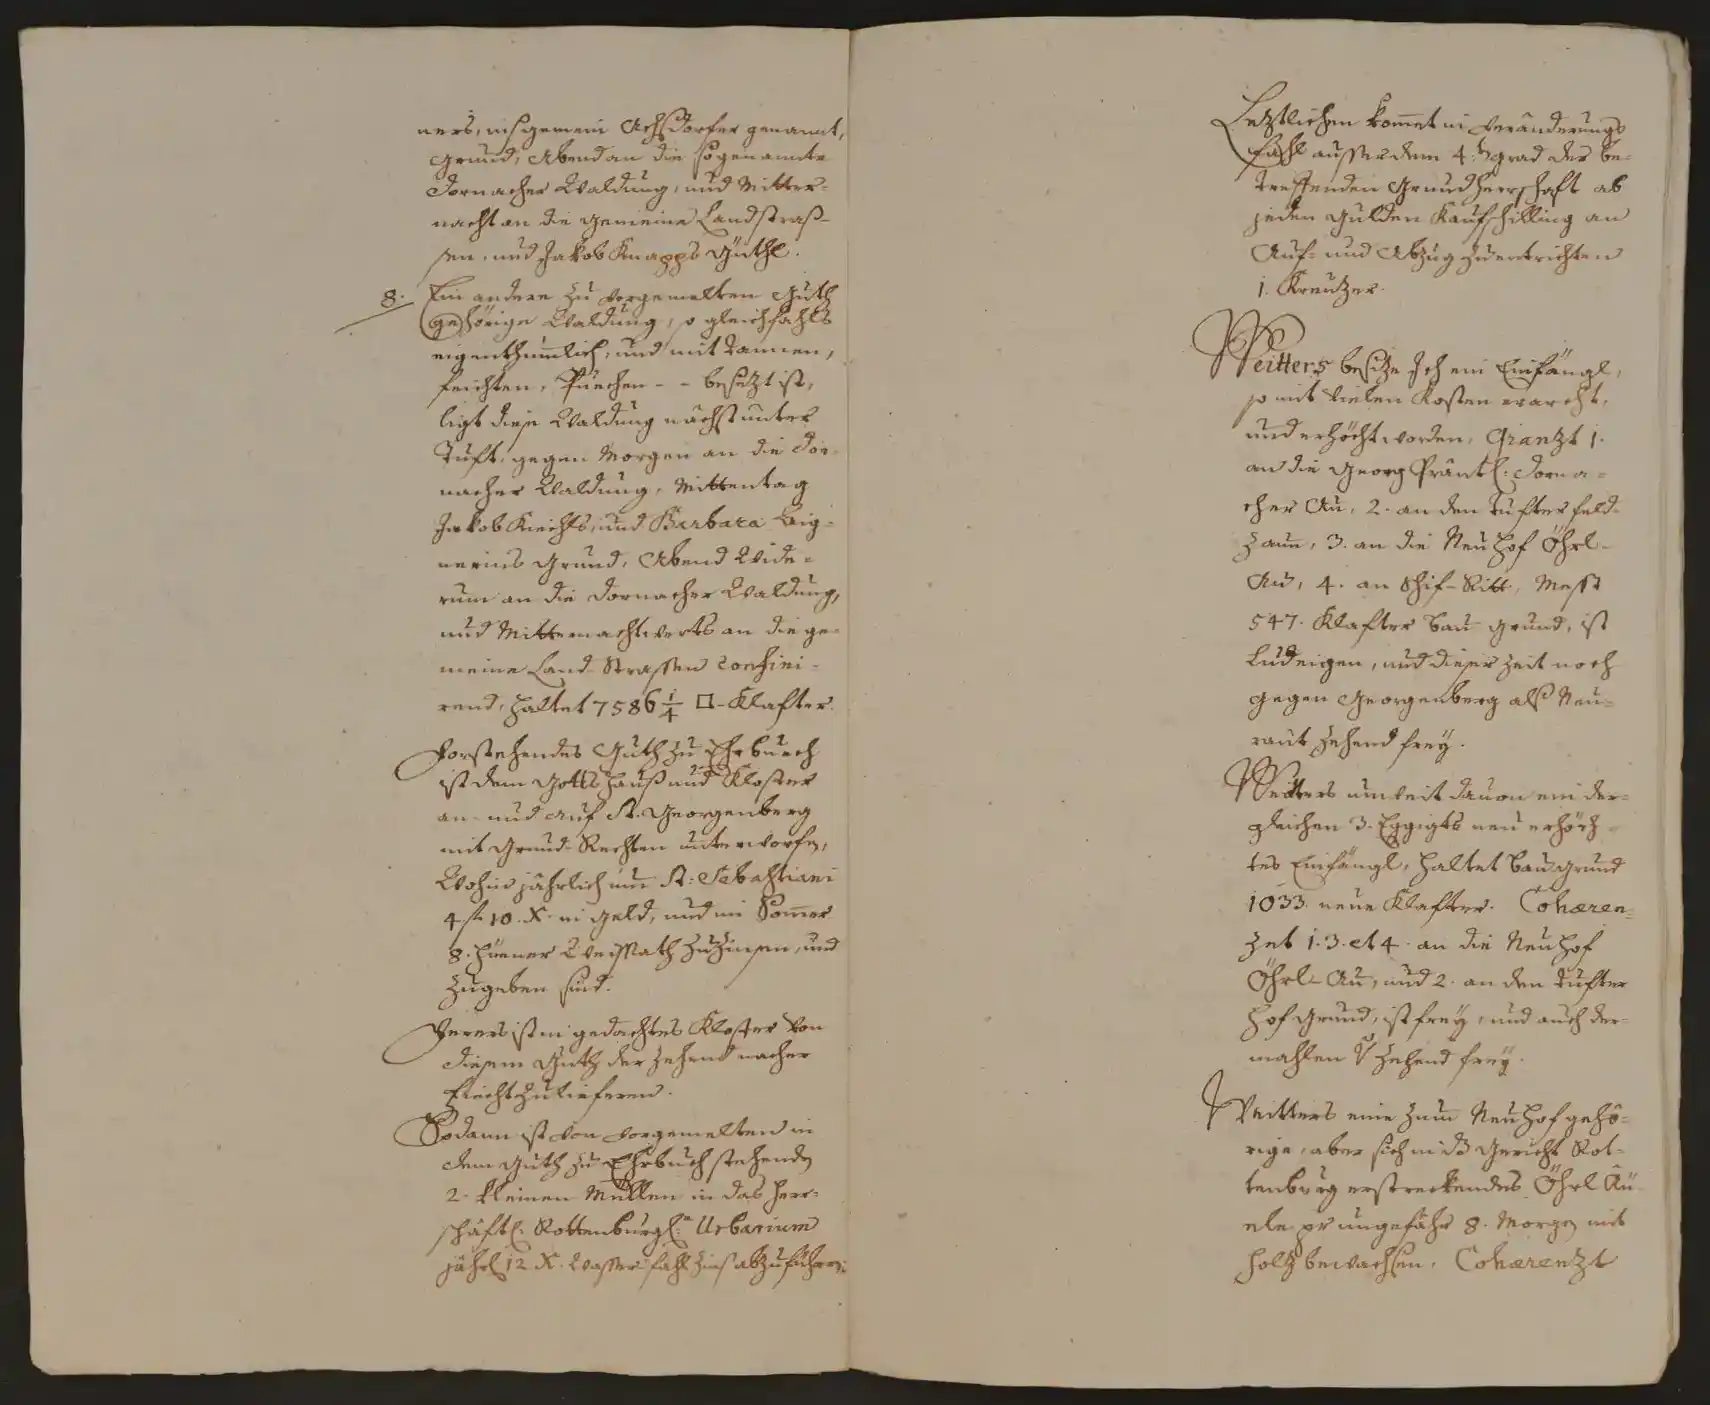 ners, insgemein Achsdorfer genannt,
Grund, Abend an die sogenannte
Dornacher Waldung, und Mitter-
nacht an die gemeine Landstras-
sen, und Jakob Knapps Güthl.
8. Ein andere zu vorgemelten Guth
gehörige Waldung, so gleichfahls
eigenthumlich, und mit Tannen,
feichten, Puechen - - besezt ist,
ligt diese Waldung nächst unter
Tuft, gegen Morgen an die Dor-
nacher Waldung, Mittentag
Jakob Knechts, und Barbara
Grund, Abend Wide-
rum an die Dornacher Waldung,
und Mitternachtwerts an die ge-
meine Land-Strassen confini-
rend, haltet 7586 1/4 □-Klafter.
Vorstehendes Guth zu Ehrbuech
ist dem Gottshaus und Kloster
an- und auf St. Georgenberg
mit Grund-Rechten unterworfen,
Wohin jährlich um St: Sebastiani
4 f 10. X. in Geld, und im Sommer
8. Hüener Weissath zu zinsen, und
zugeben sind.
Ferers ist in gedachtes Kloster von
diesem Guth der Zehend nacher
Fiecht zu lieferen.
Sodann ist von vorgemelten in
dem Guth zu Ehrbuch stehenden
2. kleinen Mullen in das herr-
schaftl. Rottenburgl. Urbarium
jährl 12 X. Wasserfahl Zins abzuführen.
Letztlichen kommet in veränderungs
fahl ausser dem 4.n grad der be-
treffenden Grundherrschaft ab
jeden Gulden Kaufschilling an
Auf- und Abzug zu entrichten
1. Kreutzer.
Weitters besize Ich ein Einfängl,
so mit vielen Kosten
und erhöcht worden, Gränzt 1.
an die Georg Präntl. Dorna-
cher Au, 2. an den Tufter feld-
zaun, 3. an die Neuhof Öhrl-
Au, 4. an Schif-Ritt, Messt
547. Klafter Bau grund, ist
Ludeigen, und dieser Zeit noch
gegen Georgenberg als Neu-
raut Zehend frey.
Weitters unweit davon ein der-
gleichen 3. Eggigts neu erhöch-
tes Einfängl, haltet Bau grund
1033. neue Klafter. Cohæren-
zet 1. 3. et 4. an die Neuhof
Öhrl-Au, und 2. an den Tufter
hof grund, ist frey, und auch der-
mahlen Zehend frey.
Weitters eine zum Neuhof gehö-
rige, aber sich in das Gericht Rot-
tenburg erstreckendes Öhrl Äu-
ele pr ungefähr 8. Morgen mit
holz bewachsen, Cohærenzt